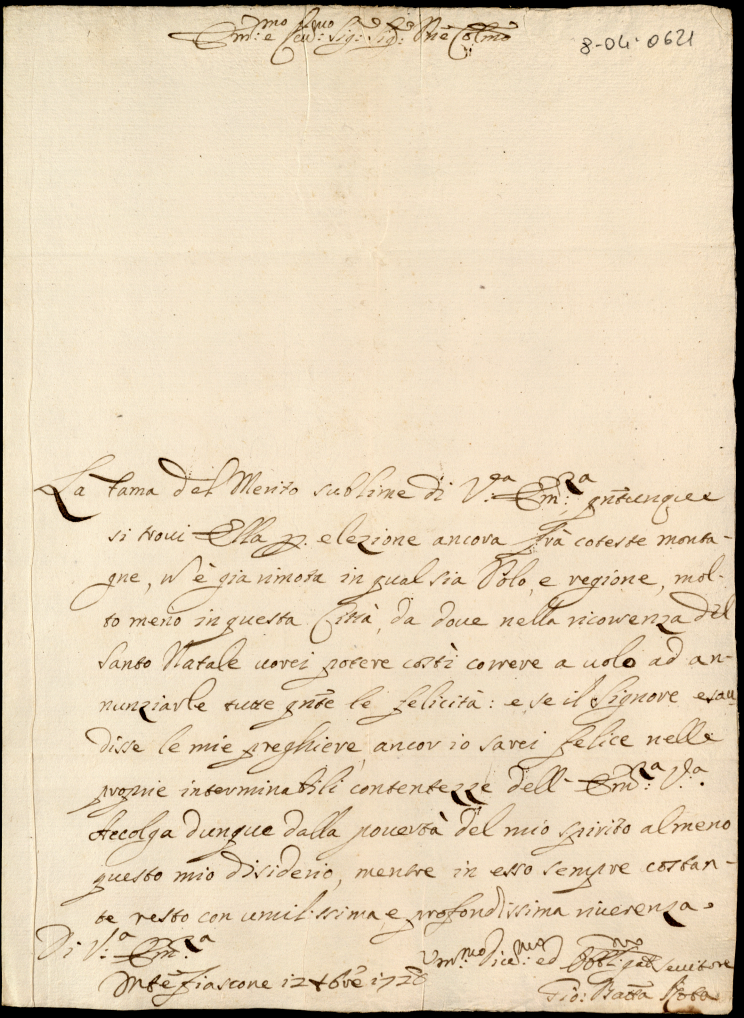 Em:mo e Rev:mo Sig: Sig: Pne Colmo
8-04-0621
La fama del Merito sublime di V.a Em:za qntunque
si trovi Ella p. elezione ancora frà coteste monta-
gne, n'è già rimota in qual sia Polo, e regione, mol-
to meno in questa Città, da dove nella ricorrenza del
Santo Natale vorei potere costì correre a volo ad an-
nunziarle tutte qnte le felicità: e se il Signore esau-
disse le mie preghiere, ancor io sarei felice nelle
proprie interminabili contentezze dell- Em:za V.a
Accolga dunque dalla povertà del mio spirito almeno
questo mio disiderio, mentre in esso sempre costan-
te resto con umilissima, e profondissima riverenza.
Di V.a Em:za
Um:mo Div:mo ed Obbl:mo servitore
Mtefiascone 12 Xbre 1728
Gio: Batta